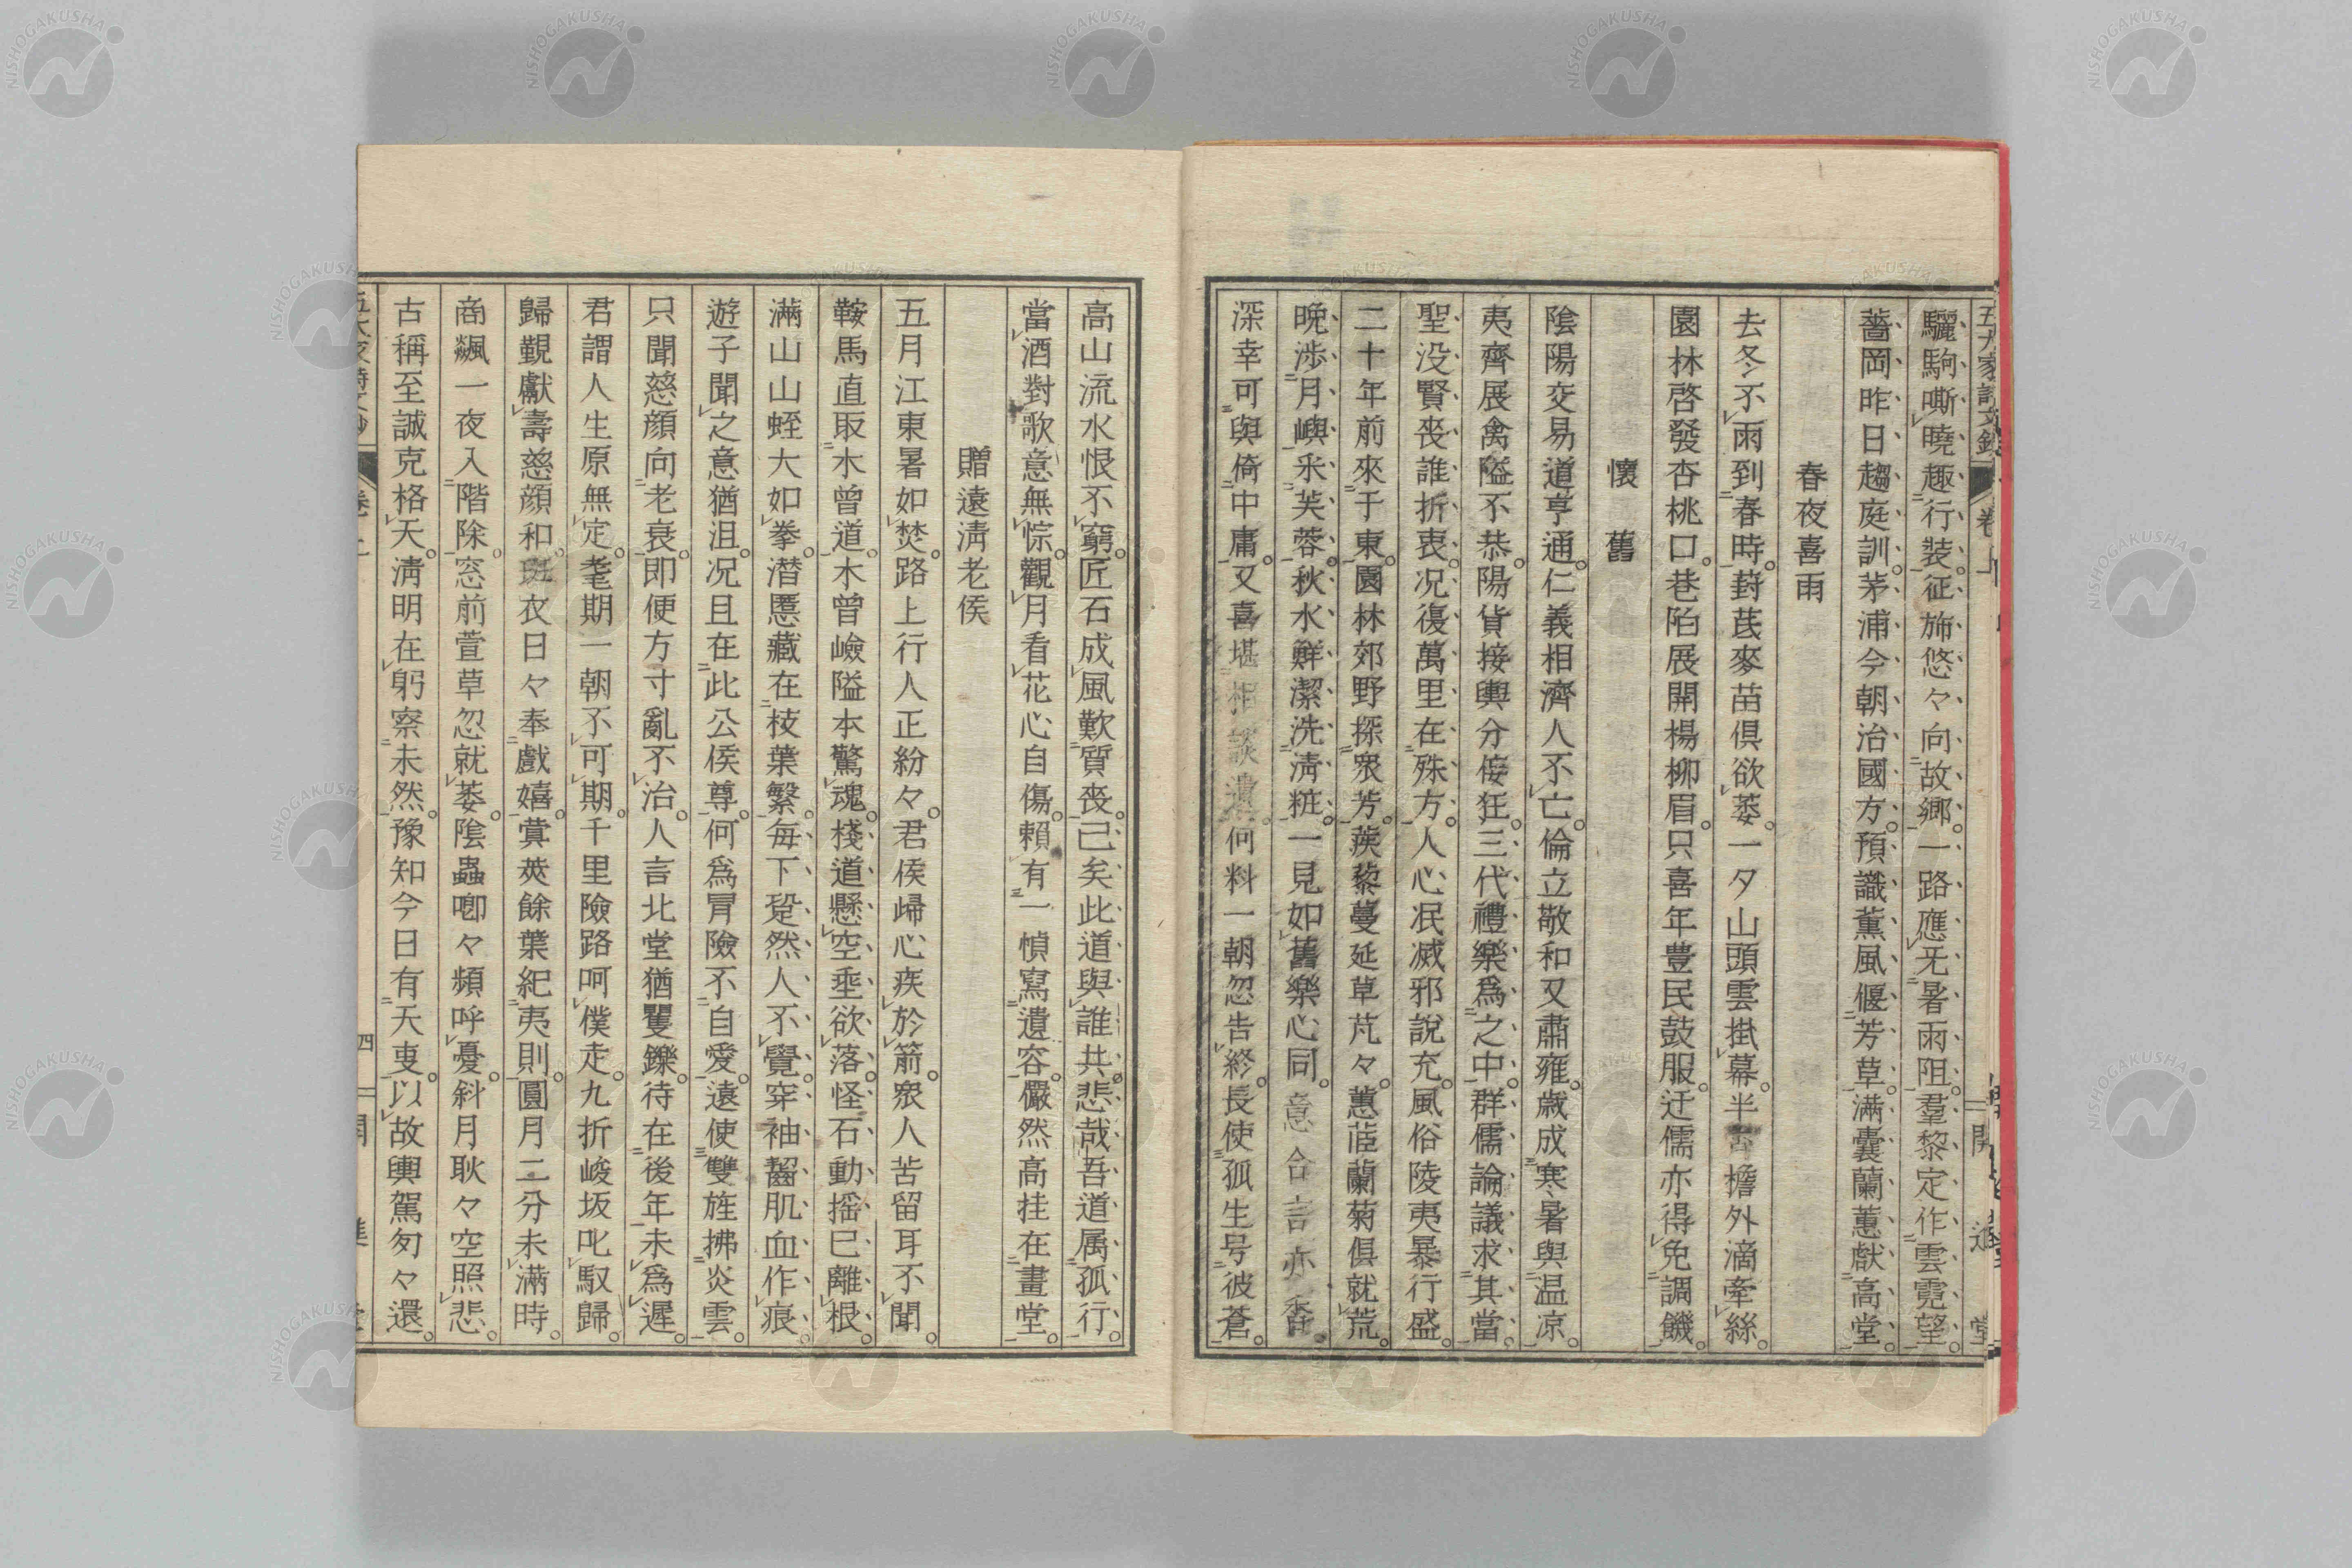 驪駒嘶曉趣行裝。征旆悠々向故鄉。一路應无暑雨阻。羣黎定作雲霓望。
薔岡昨日趨庭訓。茅浦今朝治國方。預識薰風偃芳草。滿囊蘭蕙獻高堂。
春夜喜雨
去冬不雨到春時。葑茋麥苗俱欲萎。一夕山頭雲掛幕。半檐外滴牽絲。
園林啓發杏桃口。巷陌展開楊柳眉。只喜年豊民鼓服。迂儒亦得免調饑。
懷舊
陰陽交易道亨通。仁義相濟人不亡。倫立敬和又肅雍。歲成寒暑與温凉。
夷齊展禽隘不恭。陽貨接輿分侫狂。三代禮樂爲之中。群儒論議求其當。
聖没賢喪誰折衷。況復萬里在殊方。人心泯滅邪說充。風俗陵夷暴行盛。
二十年前來于東。園林郊野探衆芳。蒺藜蔓延草芃々。蕙茝蘭菊俱就荒。
晩渉月嶼采芙蓉。秋水鮮潔洗淸粧。一見如舊樂心同。意合言亦香。
深幸可與倚中庸。又喜堪相談遺。何料一朝忽告終。長使孤生号彼蒼。
高山流水恨不窮。匠石成風歎質喪。已矣此道與誰共。悲哉吾道属孤行。
當酒對歌意無悰。觀月看花心自傷。賴有一幀寫遺容。儼然高挂在畫堂。
贈遠淸老侯
五月江東暑如焚。路上行人正紛々。君侯歸心疾於箭。衆人苦留耳不聞。
鞍馬直取木曾道。木曾嶮隘本驚魂。棧道懸空埀欲落。怪石動搖已離根。
滿山山蛭大如拳。潛慝藏在枝葉繁。每下跫然人不覺。穿袖齧肌血作痕。
遊子聞之意猶沮。況且在此公侯尊。何爲冐險不自愛。遠使雙旌拂炎雲。
只聞慈顏向老衰。即便方寸亂不治。人言北堂猶矍鑠。待在後年未爲遲。
君謂人生原無定。耄期一朝不可期。千里險路呵僕走。九折峻坂叱馭歸。
歸覲獻壽慈顏和。斑衣日々奉戲嬉。蓂莢餘葉紀夷則。圓月二分未滿時。
商飆一夜入階除。窓前萱草忽就萎。陰蟲喞々頻呼憂。斜月耿々空照悲。
古稱至誠克格天。淸明在躬察未然。豫知今日有天叓。以故輿駕匆々還。